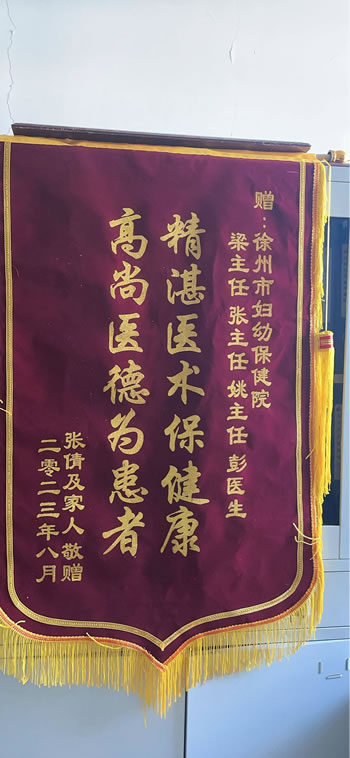 赠：徐州市妇幼保健院
梁主任 张主任 姚主任 彭医生
精湛医术保健康
高尚医德为患者
张倩及家人 敬赠
二零二三年八月